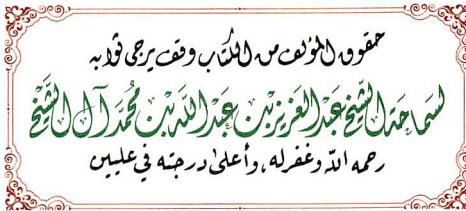 حقوق المؤلف من الكتاب وقف يرجى ثوابه
لسماحة الشيخ عبد العزيز بن عبد الله بن محمد آل الشيخ
رحمه الله وغفر له، وأعلى درجته في عليين